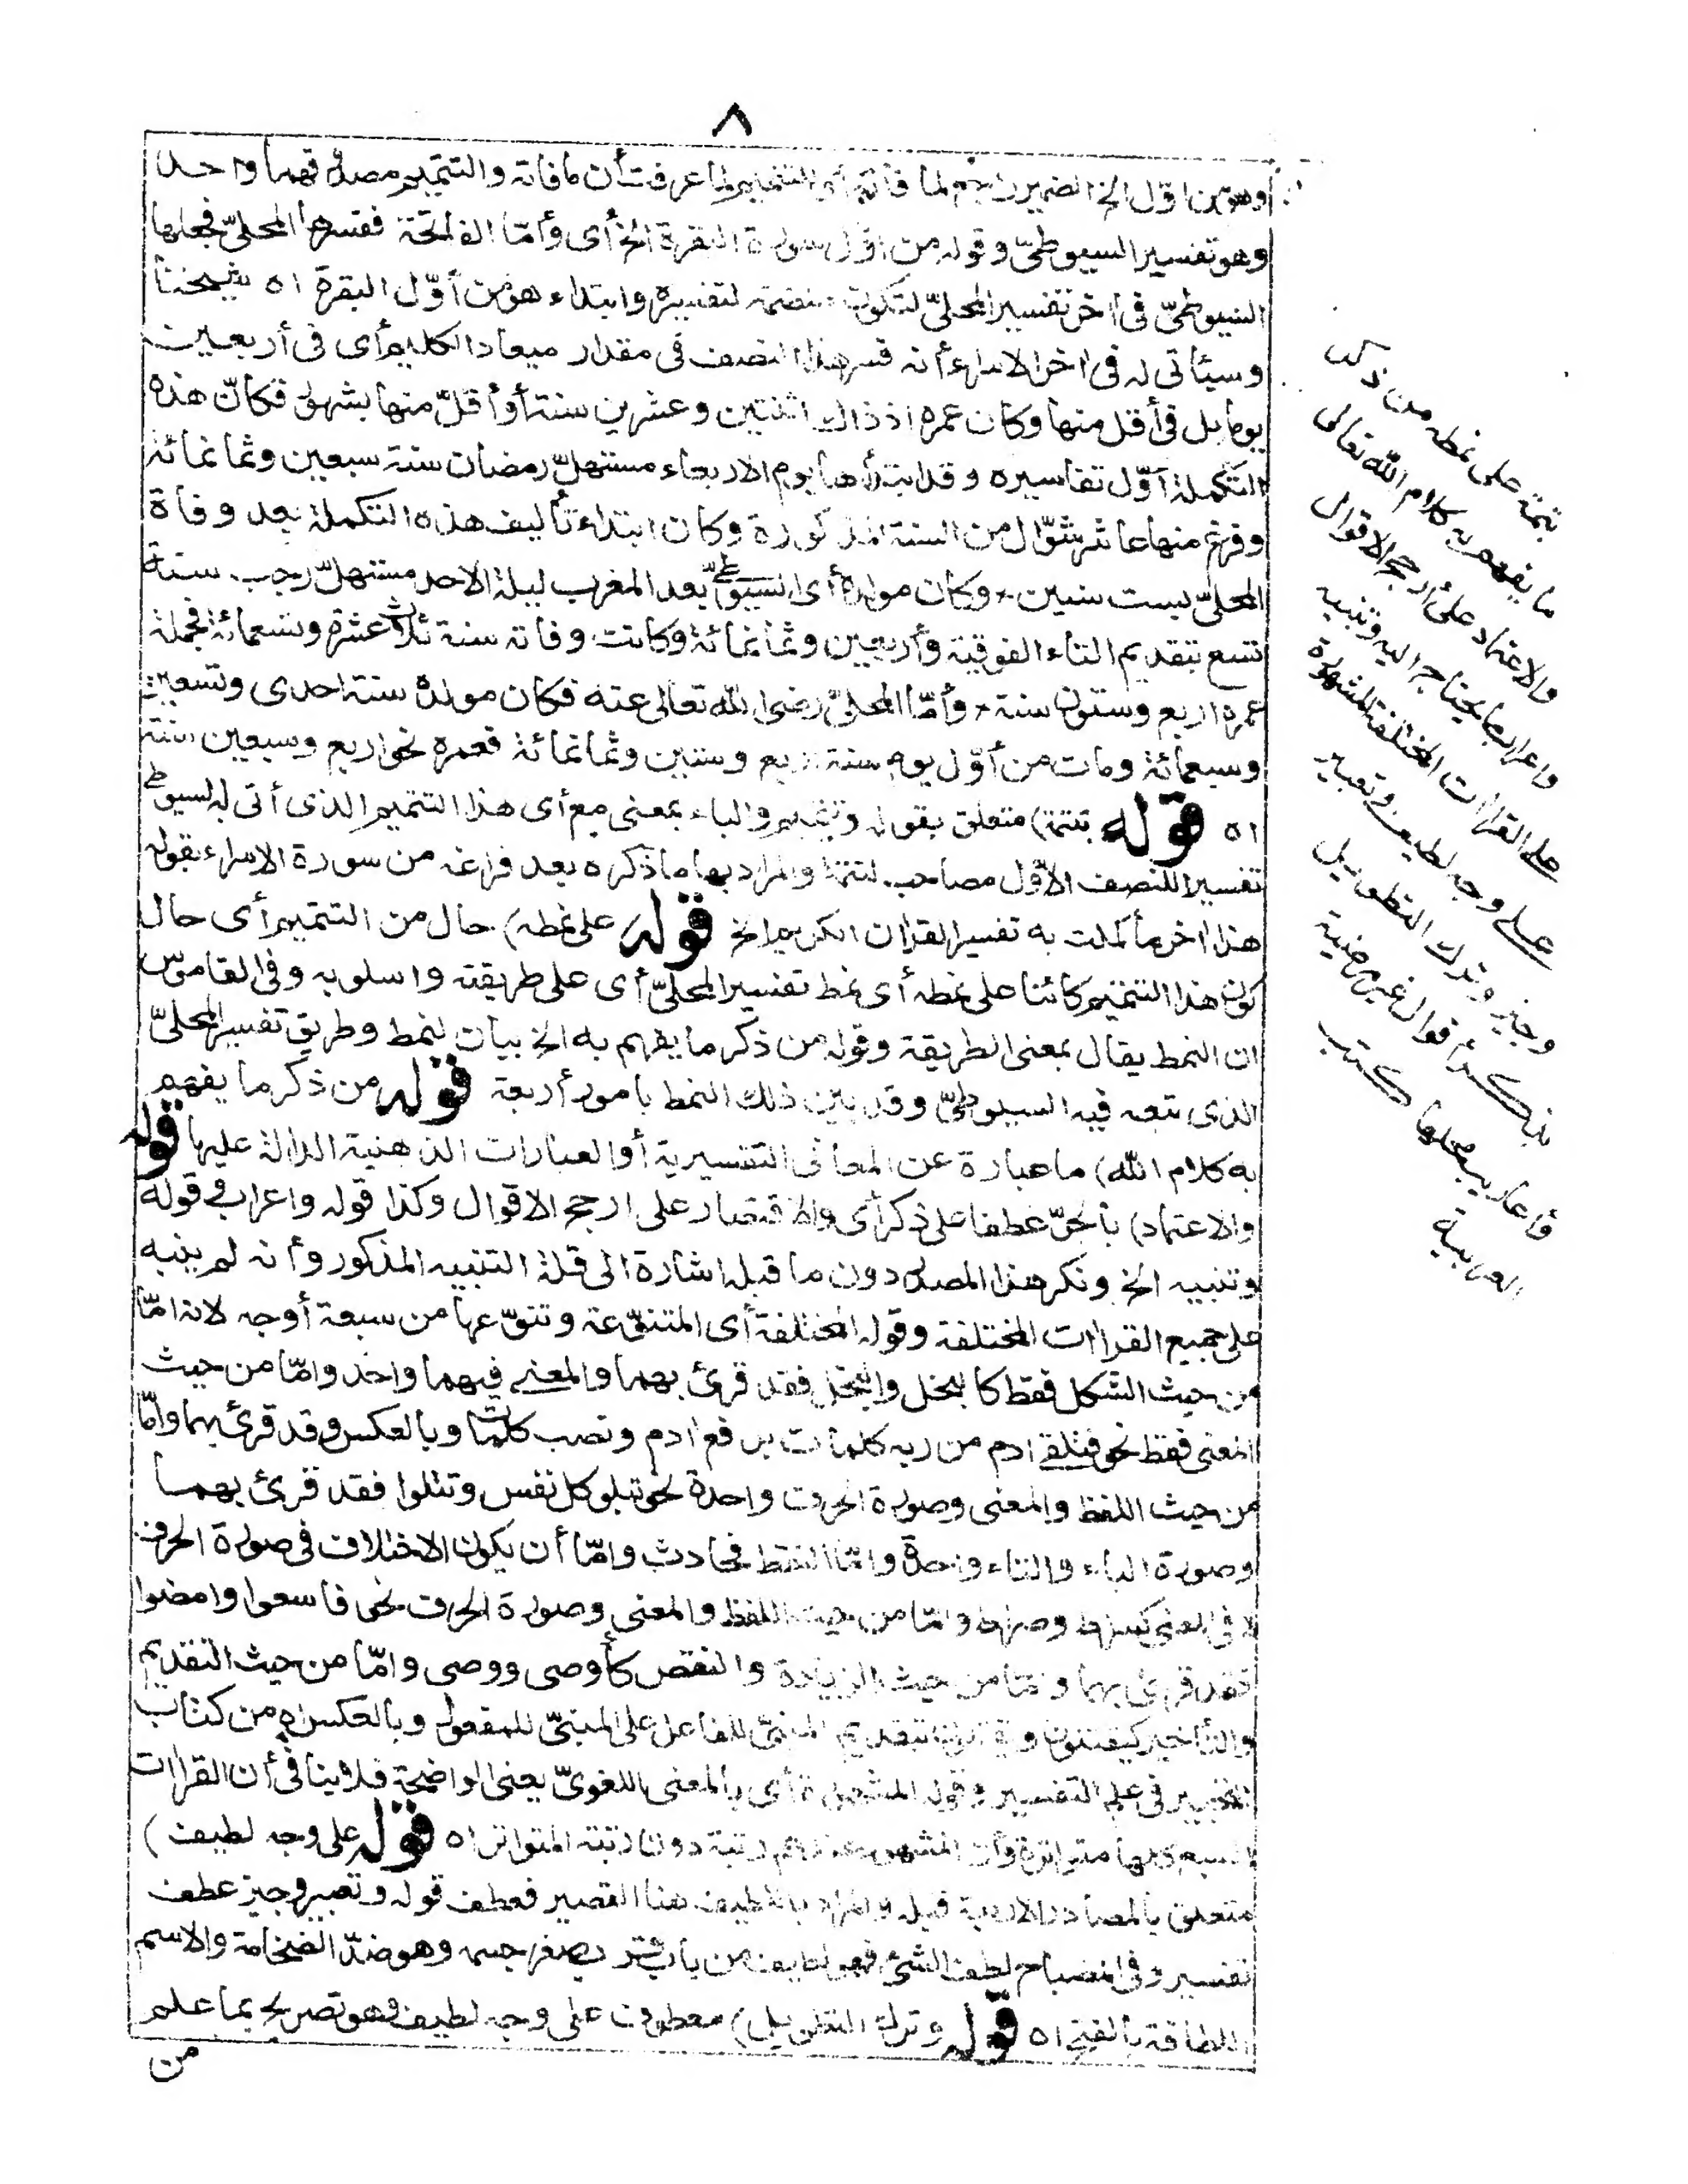 ٨
وهو من اوّل الخ الضمير راجع لما فاته أو للتتميم لما عرفت أن ما فاته والتتميم مصدوقهما واحد
وهو تفسير السيوطيّ وقوله من اوّل سورة البقرة الخ أى وأمّا الفاتحة ففسرها المحلىّ فجعلها
السيوطىّ فى اخر تفسير المحلىّ لتكون منضمة لتفسيره وابتداء هو من أوّل البقرة اه شيخنا
وسيئاتى له فى اخر الاسراء أنه فسر هذا النصف فى مقدار ميعاد الكليم أى فى أربعين
يوما بل فى أقل منها وكان عمره اذ ذاك اثنتين وعشرين سنة أو أقلّ منها بشهور فكانّ هذه
التكملة أوّل تفاسيره وقد ابتدأها يوم الاربعاء مستهلّ رمضان سنة سبعين وثمانمائة
وفرغ منها عاشر شوّال من السنة المذكورة وكان ابتداء تأليف هذه التكملة بعد وفاة
المحلىّ بست سنين وكان مولده أى السيوطىّ بعد المغرب ليلة الاحد مستهلّ رجب سنة
تسع بتقديم التاء الفوقية وأربعين وثمانمائة وكانت وفاته سنة ثلاث عشرة وتسعمائة فجملة
عمره اربع وستون سنة وأمّا المحلىّ رضى الله تعالى عنه فكان مولده سنة احدى وتسعين
وسبعمائة ومات من أوّل يوم سنة اربع وستين وثمانمائة فعمره نحو اربع وسبعين سنة
اه قوله بتتمة) متعلق بقوله وتتميم والباء بمعنى مع أى هذا التتميم الذى أتى به السيوطى
تفسيرا للنصف الأوّل مصاحب لتتمة والمراد بها ما ذكره بعد فراغه من سورة الاسراء بقوله
هذا اخر ما أكملت به تفسير القران الكريم الخ قوله على نمطه) حال من التتميم أى حال
كون هذا التتميم كائنا على نمطه أى نمط تفسير المحلىّ أى على طريقته واسلوبه وفى القاموس
ان النمط يقال بمعنى الطريقة وقوله من ذكر ما يفهم به الخ بيان لنمط وطريق تفسير المحلىّ
الذى تبعه فيه السيوطىّ وقد بين ذلك النمط بامور أربعة قوله من ذكر ما يفهم
به كلام الله) ما عبارة عن المعانى التفسيرية أو العبارات الذهنية الدالة عليها قوله
والاعتماد) بالجرّ عطفا على ذكر أى والاقتصار على ارجح الاقوال وكذا قوله واعراب وقوله
وتنبيه الخ ونكر هذا المصدر دون ما قبله اشارة الى قلة التنبيه المذكور وأنه لم ينبه
على جميع القراات المختلفة وقوله المختلفة أى المتنوّعة وتنوّعها من سبعة أوجه لانه امّا
من حيث الشكل فقط كالبخل والبخل فقد قرئ بهما والمعنى فيهما واحد وامّا من حيث
المعنى فقط نحو فتلقى ادم من ربه كلمات برفع ادم ونصب كلمات وبالعكس وقد قرئ بهما وامّا
من حيث اللفظ والمعنى وصورة الحروف واحدة نحو تبلو كل نفس وتتلوا فقد قرئ بهما
وصورة الباء والتاء واحدة وامّا النقط فحادث وامّا أن يكون الاختلاف فى صورة الحرف
لا فى المعنى كسراط وصراط وامّا من حيث اللفظ والمعنى وصورة الحرف نحو فاسعوا وامضوا
فقد قرئ بهما وامّا من حيث الزيادة والنقص كأوصى ووصى وامّا من حيث التقديم
والتأخير كيقتلون ويقتلون بتقديم المبنىّ للفاعل على المبنىّ للمفعول وبالعكس اه من كتاب
التحبير فى علم التفسير وقوله المشهورة أى بالمعنى اللغوىّ يعنى الواضحة فلا ينافى أن القراات
السبع كلها متواترة وأن المشهور عندهم رتبة دون رتبة المتواتر اه قوله على وجه لطيف)
متعلق بالمصادر الاربعة قبله والمراد باللطيف هنا القصير فعطف قوله وتعبير وجيز عطف
تفسير وفى المصباح لطف الشئ فهو لطيف من باب قرب صغر جسمه وهو ضدّ الضخامة والاسم
اللطافة بالفتح اه قوله وترك التطويل) معطوف على وجه لطيف وهو تصريح بما علم
من
تتمة على نمطه من ذكر
ما يفهم به كلام الله تعالى
والاعتماد على أرجح الاقوال
واعراب ما يحتاج اليه وتنبيه
على القراات المختلفة المشهورة
على وجه لطيف وتعبير
وجيز وترك التطويل
بذكر أقوال غير مرضية
وأعاريب محلها كتب
العربية